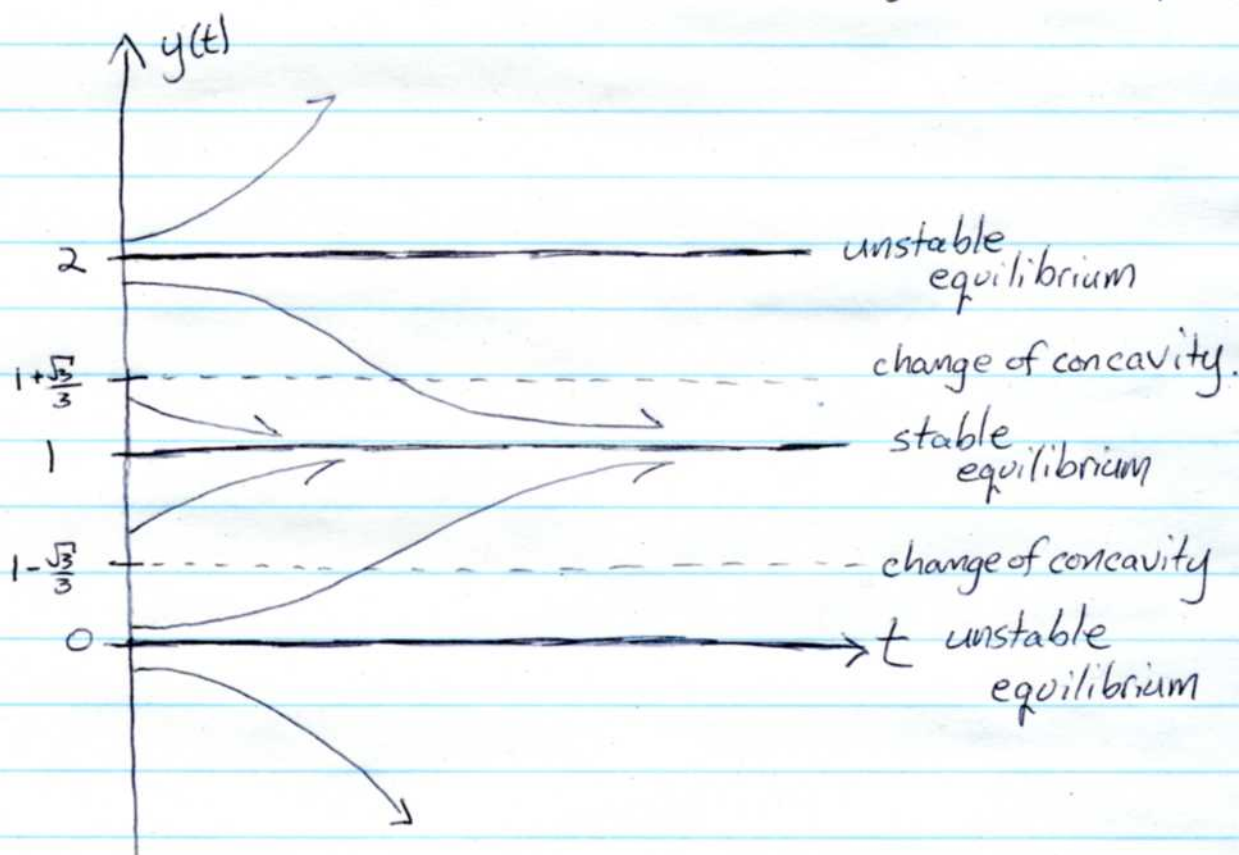 y(t)
2
unstable
equilibrium
1+√3/3
change of concavity.
1
stable
equilibrium
1-√3/3
change of concavity
0
t unstable
equilibrium